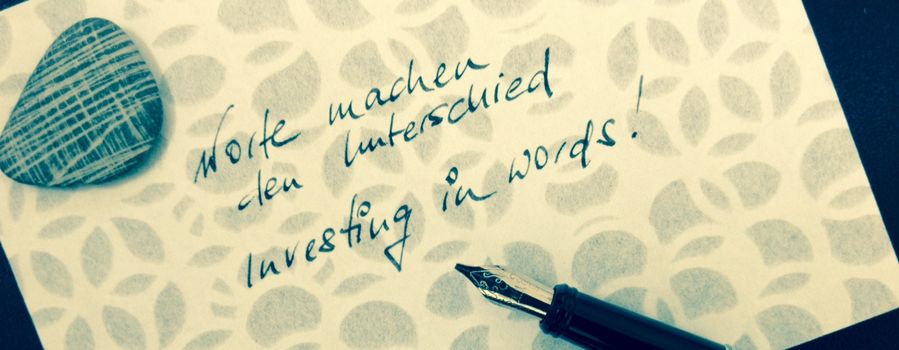 Worte machen
den Unterschied
Investing in words!